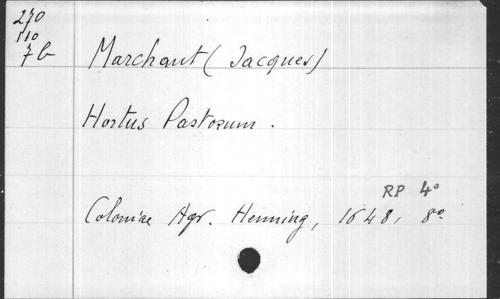 270
110
7b
Marchant (Jacques)
Hortus Pastorum.
RP 4°
Coloniae Agr. Henning, 1648, 8°